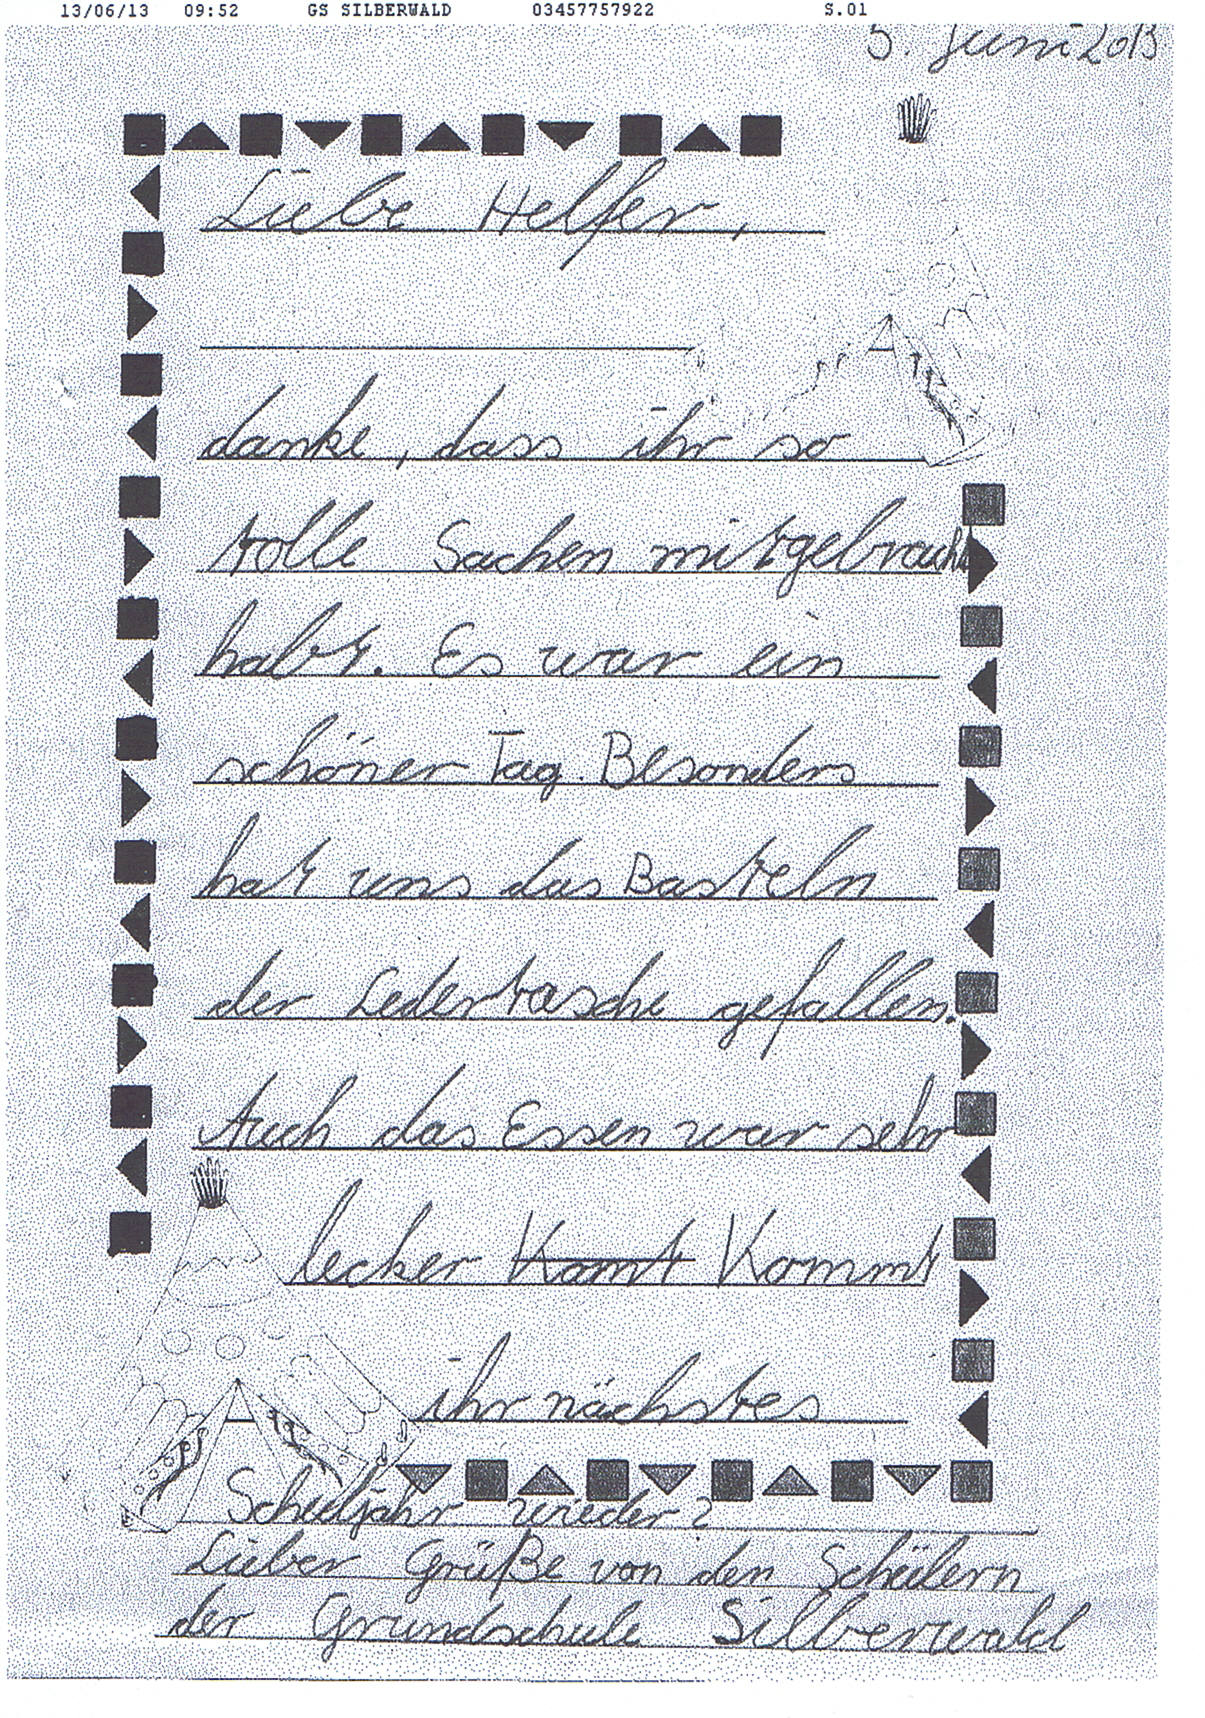 13/06/13 09:52 GS SILBERWALD 03457757922 S.01
5. Juni 2013
Liebe Helfer,
danke, dass ihr so
tolle Sachen mitgebracht
habt. Es war ein
schöner Tag. Besonders
hat uns das Basteln
der Ledertasche gefallen.
Auch das Essen war sehr
lecker Komt Kommt
ihr nächstes
Schuljahr wieder?
Lieber Grüße von den Schülern
der Grundschule Silberwald